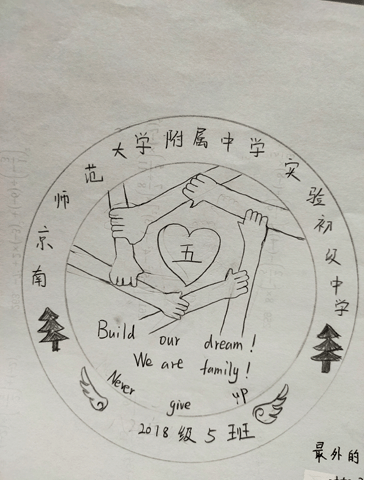 南京师范大学附属中学实验初级中学
五
Build our dream!
We are family!
Never give up
2018级5班
最外的